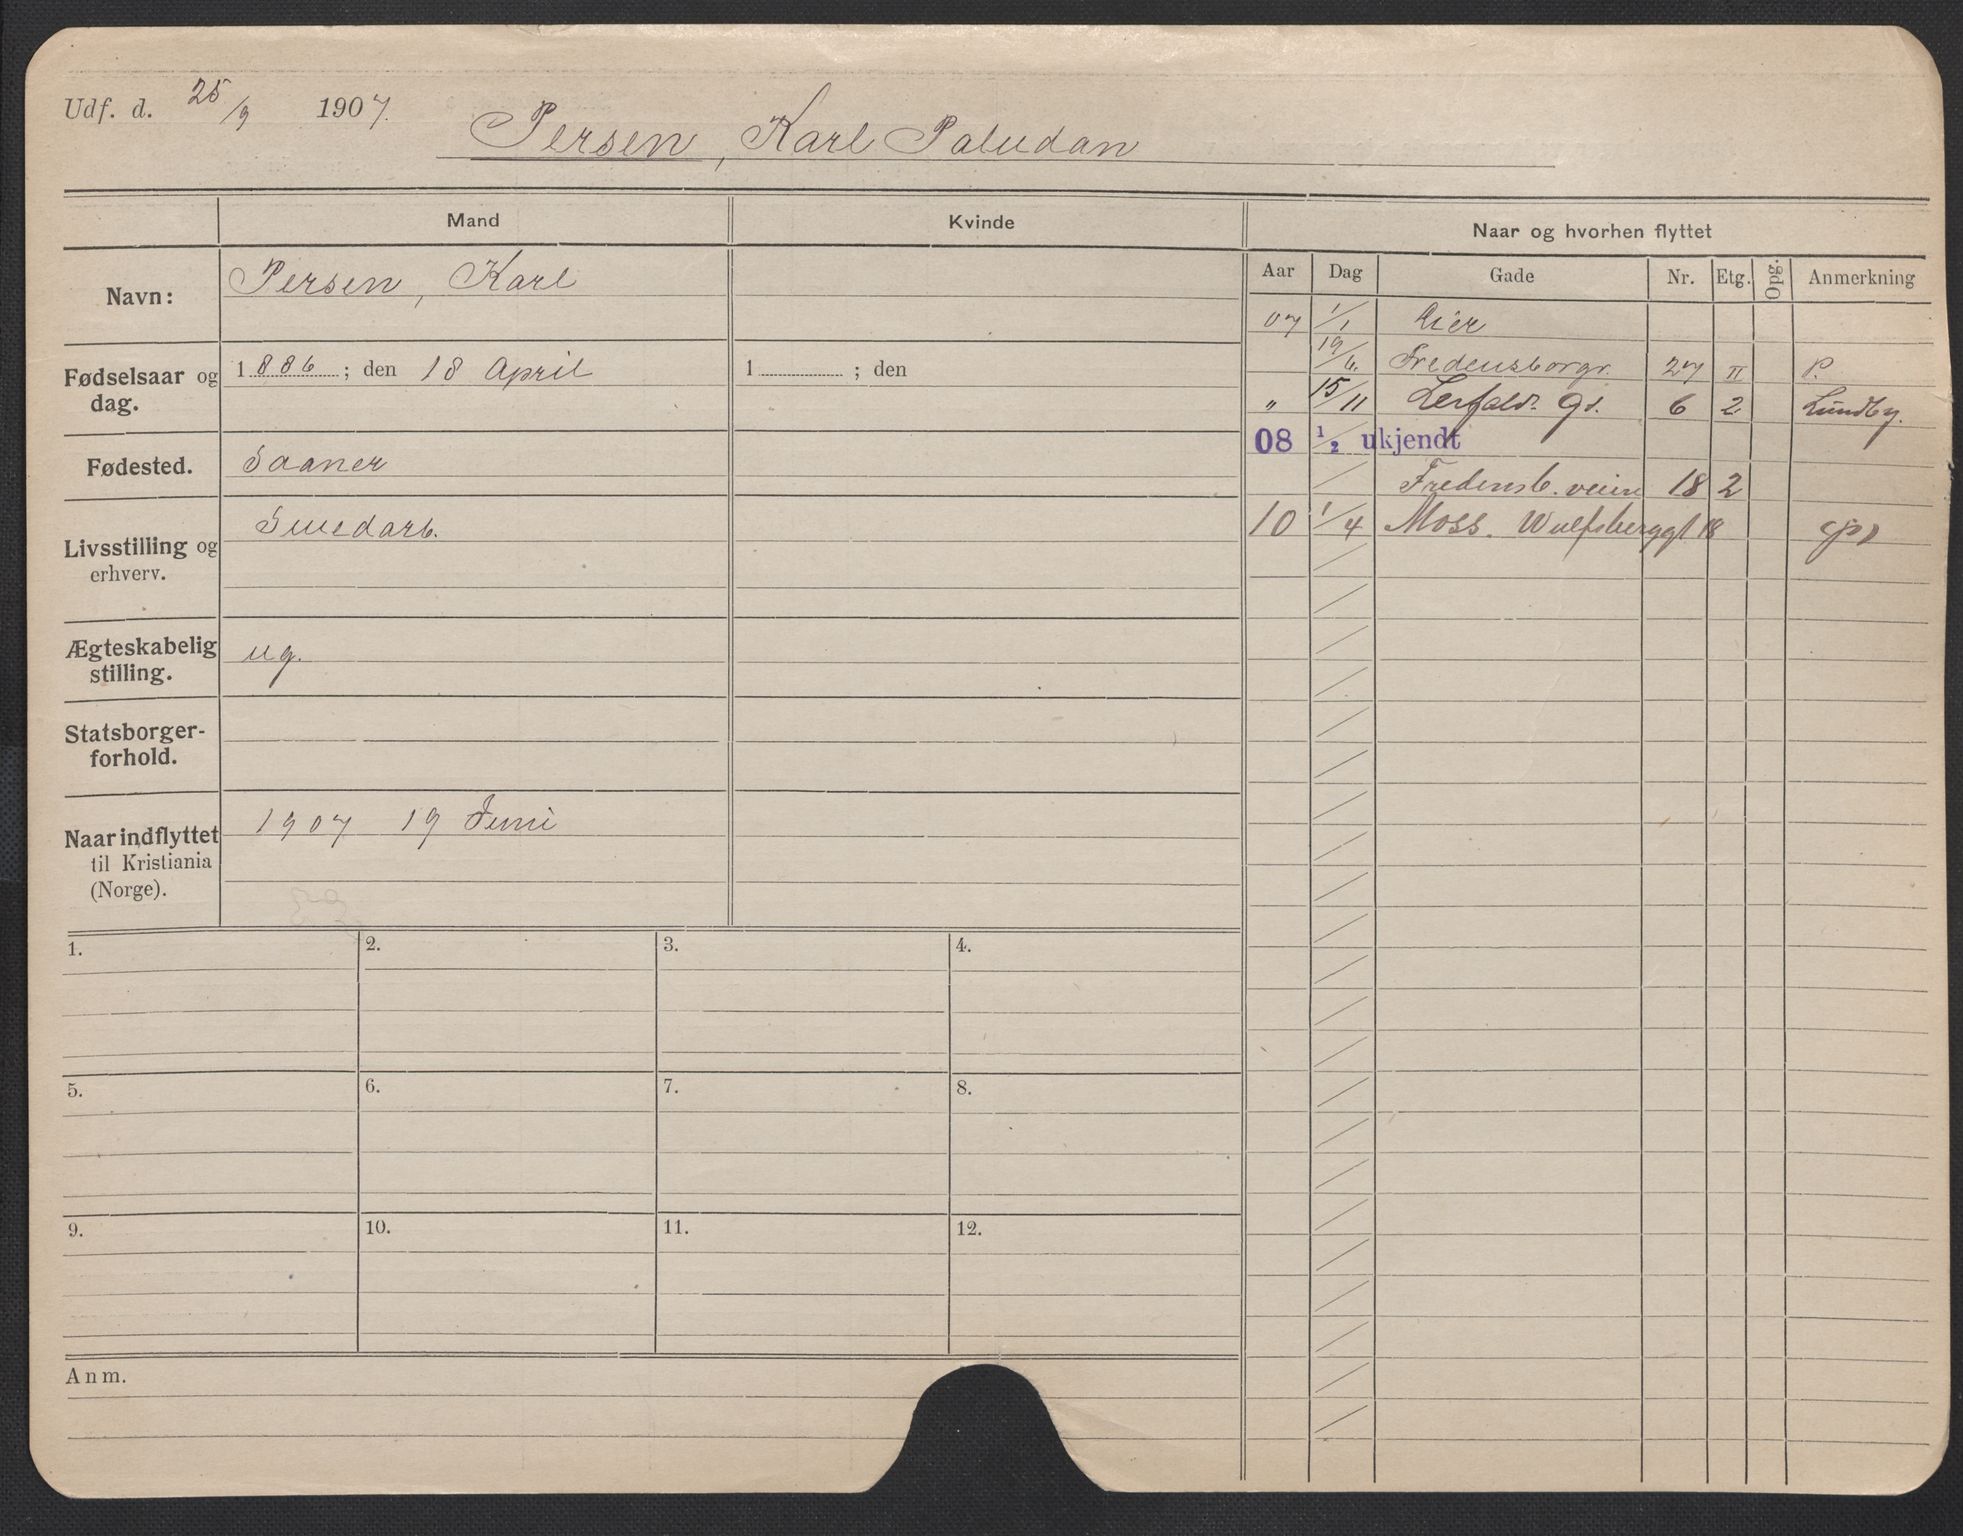 Udf. d. 25/9 1907.
Persen, Karl Paludan
Mand
Kvinde
Naar og hvorhen flyttet
Aar Dag Gade Nr. Etg. Opg. Anmerkning
Navn: Persen, Karl
Fødselsaar og dag. 1886; den 18 April
1 ; den
Fødested. Saaner
Livsstilling og erhverv. Smedarb.
Ægteskabelig stilling. ug.
Statsborger-forhold.
Naar indflyttet til Kristiania (Norge). 1907 19 Juni
07 1/1 Lier
19/6. Fredensborgv. 27 II P.
" 15/11 Lerfald. Gd. 6 2 Lundby.
08 1/2 ukjendt
Fredensb. veien 18 2
10 1/4 Moss. Wulfsberggt 18
1.
2.
3.
4.
5.
6.
7.
8.
9.
10.
11.
12.
Anm.